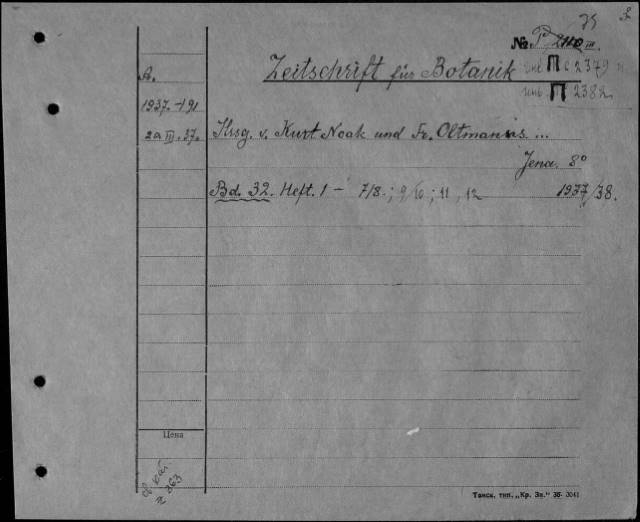 75
№ P 2110 м.
Zeitschrift für Botanik
инв П с 2379
инв П 2382
A.
1937-191
2a III.37.
Hrsg. v. Kurt Noak und Fr. Oltmanns ...
Jena. 8°
Bd. 32. Heft. 1 - 7/8.; 9/10; 11, 12 1937/38.
Цена
363
Томск. тип. „Кр. Зн.“ 36- 3041